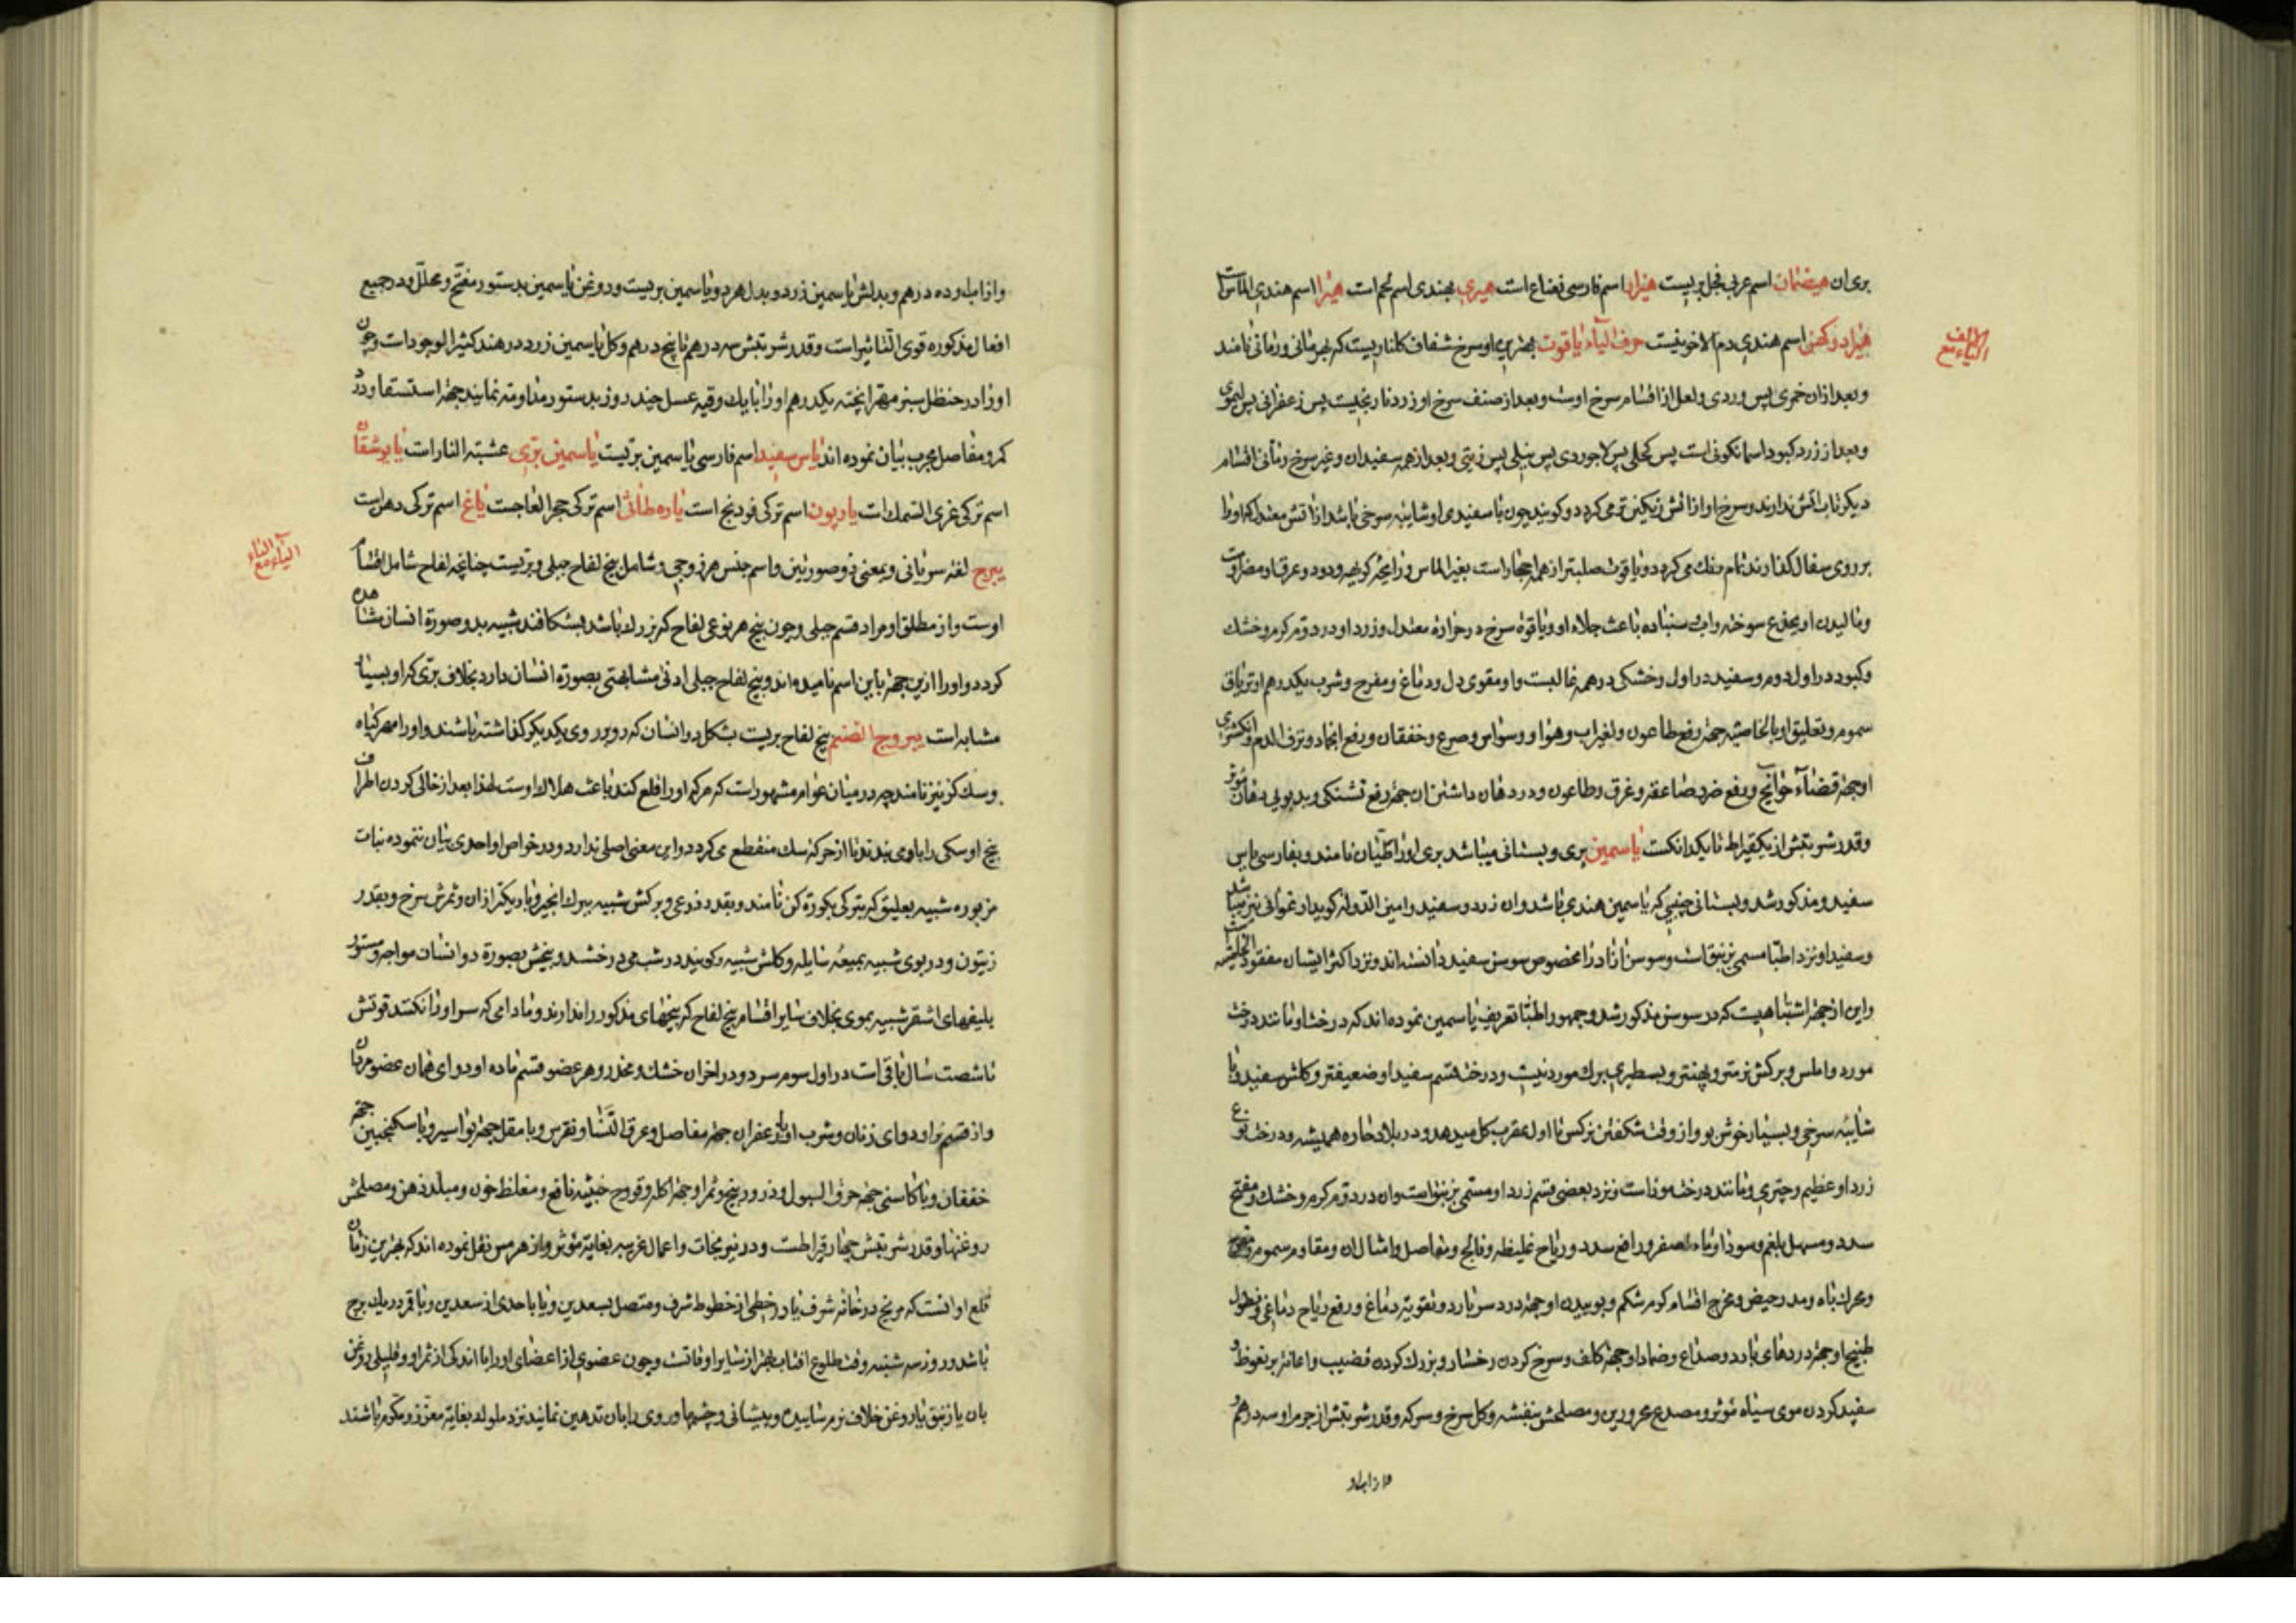 بری ان هیضمان اسم عربی فجل بریست هزار اسم فارسی فقاع است هیری بهندی اسم لحم است هیرا اسم هندی الماس است
هیرادوکهی اسم هندی دم الاخوینست حرف الیاء یاقوت بهترین او سرخ شفاف کلناریست که بهرمانی و رمانی نامند
الیاء مع الالف
و بعد ازان خمری پس وردی و لعل از اقسام سرخ اوست و بعد از صنف سرخ او زرد نارنجیست پس زعفرانی پس لیموی
و بعد از زرد کبود اسمانکونی است پس کحلی پس لاجوردی پس نیلی پس زیتی و بعد از همه سفید ان و غیر سرخ و مانی اقسام
دیکر تاب اتش ندارند و سرخ او از اتش رنکین تر می کردد و کویند چون با سفیدی او شایبه سرخی باشد از اتش معتدل که او را
بر روی سفال کذارند تمام رنک می کردد و یاقوت صلبتر از همه احجار است بغیر الماس و رایحه کریهه و دود و عرق او مضر اوست
و مالیدن او بجزع سوخته و اب سنباده باعث جلاء او و یاقوة سرخ در حرارة معتدل و زرد او در دوم کرم و خشک
و کبود در اول دوم و سفید در اول و خشکی در همه غالبست و او مقوی دل و دماغ و مفرح و شرب یکدرهم او تریاق
سموم و تعلیق او بالخاصیة جهة رفع طاعون و تغیر اب و هوا و وسواس و صرع و خفقان و رفع انجماد و نزف الدم و انکشتری
او جهة قضاء حوایج و رفع ضرر صاعقه و غرق و طاعون و در دهان داشتن ان جهة رفع تشنکی و بدبویی دهان مؤثر
و قدر شربتش از یکقیراط تا یکدانکست یاسمین بری و بستانی میباشد بری او را ظیان نامند و بفارسی یاس
سفید و مذکور شد و بستانی چنبی که یاسمین هندی باشد و ان زرد و سفید و امین الدوله کوید ارغوانی نیز میباشد
و سفید او نزد اطبا مسمی بزنبق است و سوسن ازاد را مخصوص سوسن سفید دانسته اند و نزد اکثر ایشان مفقود الحلیتست
و این از جهة اشتباهیست که در سوسن مذکور شد و جمهور اطبا تعریف یاسمین نموده اند که درخت او مانند درخت
مورد و املس و برکش نرمتر و پهنتر و بسطبری برک مورد نیست و درخت قسم سفید او ضعیفتر و کلش سفید و با
شایبه سرخی و بسیار خوش بو و از وقت شکفتن نرکس تا اول عقرب کل میدهد و در بلاد حاره همیشه و درخت نوع
زرد او عظیم و چتری و مانند درخت موز است و نزد بعضی قسم زرد او مسمی بزنبق است و ان در دوم کرم و خشک و مفتح
سدد و مسهل بلغم و سودا و ماء اصفر و رافع سدد و ریاح غلیظه و فالج و مفاصل و امثال ان و مقاوم سموم و مقوی
و محرک باه و مدر حیض و مخرج اقسام کرم شکم و بوییدن او جهة درد سر بارد و تقویة دماغ و رفع ریاح دماغی و نطول
طبیخ او جهة دردهای بارد و صداع و ضماد او جهة کلف و سرخ کردن رخسار و بزرک کردن قضیب و اعانة بر نعوظ و
سفید کردن موی سیاه مؤثر و مصدع محرورین و مصلحش بنفشه و کل سرخ و سرکه و قدر شربتش از جرم او سه درهم
و از اب او
و از اب او ده درهم و بدلش یاسمین زرد و بدل هر دو یاسمین بریست و روغن یاسمین بدستور مفتح و محلل و در جمیع
افعال مذکوره قوی التاثیر است و قدر شربتش سه درهم تا پنج درهم و کل یاسمین زرد در هند کثیر الوجود است و چون
او را در حنظل سبز مهرا پخته یکدرهم او را با یک وقیه عسل چند روز بدستور مداومة نمایند جهة استسقا و درد
کمر و مفاصل مجرب بیان نموده اند یاس سفید اسم فارسی یاسمین بریست یاسمین بری عشبة النار است یاپرشقان
اسم ترکی غری السمک است یارپوز اسم ترکی فودنج است یاره طاشی اسم ترکی حجر العاجست یاغ اسم ترکی دهن است
یبروح لغة سریانی و بمعنی ذو صورتین و اسم جنس هر ذو جی و شامل بیخ لفاح جبلی و بریست چنانچه لفاح شامل اقسام
الیاء مع الباء
اوست و از مطلق او مراد قسم جبلی و چون بیخ هر نوعی لفاح که بزرک باشد بشکافند شبیه بدو صورة انسان مشاهده
کردد و او را ازین جهة باین اسم نامیده اند و بیخ لفاح جبلی ادنی مشابهتی بصورة انسان دارد بخلاف بری که او بسیار
مشابه است یبروح الصنم بیخ لفاح بریست بشکل دو انسان که رو بر روی یکدیکر کذاشته باشند و او را مهر کیاه
و سک کن نیز نامند چه در میان عوام مشهور است که هر که او را قلع کند باعث هلاک اوست لهذا بعد از خالی کردن اطراف
بیخ او سکی را باو می بندند تا از حرکة سک منقطع می کردد و این معنی اصلی ندارد و در خواص او احدی بیان ننموده نبات
مزبوره شبیه بعلیق که بترکی بکورة کن نامند و بقدر ذرعی و برکش شبیه ببرک انجیر و باریکتر ازان و ثمرش سرخ و بقدر
زیتون و در بوی شبیه بمیعه سایله و کلش شبیه و کویند در شب می درخشد و بیخش بصورة دو انسان مواجه و مستور
بلیفهای اشقر شبیه بموی بخلاف سایر اقسام بیخ لفاح که بیخهای مذکور را ندارند و مادامی که سر او را نکنند قوتش
تا شصت سال باقی است در اول سوم سرد و در اخر ان خشک و مخدر و هر عضو قسم ماده او دوای همان عضو مردان
و از قسم نر او دوای زنان و شرب او با زعفران جهة مفاصل و عرق النسا و نقرس و با مقل جهة بواسیر و با سکنجبین جهة
خفقان و با کاسنی جهة حرق البول و ذرور بیخ و ثمر او جهة اکله و قروح خبیثه نافع و مغلظ خون و مبلد ذهن و مصلحش
روغنها و قدر شربتش چهار قیراطست و در نیرنجات و اعمال غریبه بغایة مؤثر و از هرمس نقل نموده اند که بهترین زمان
قلع او انست که مریخ در خانه شرف یا در خطی از خطوط شرف و متصل بسعدین و یا باحدی از سعدین و با قمر در یک برج
باشد و روز سه شنبه وقت طلوع افتاب بهتر از سایر اوقاتست و چون عضوی از اعضای او را با اندکی از ثمر او و قلیلی روغن
بان یا زنبق یا روغن خلاف نرم سایند و پیشانی و چشمها و روی را بان تدهین نمایند نزد ملوک بغایة معزز و مکرم باشند